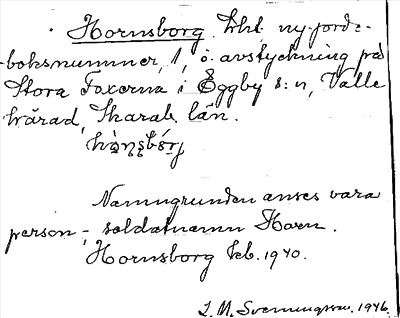 Hornsborg, lht. ny jorde-
boksnummer, 1, ö. avstyckning på
Stora Foxerna i Eggby s:n, Valle
härad, Skarab. län.
Namngrunden anses vara
person-, soldatnamn Horn.
Hornsborg keb. 1940.
L. M. Svenungsson, 1946.